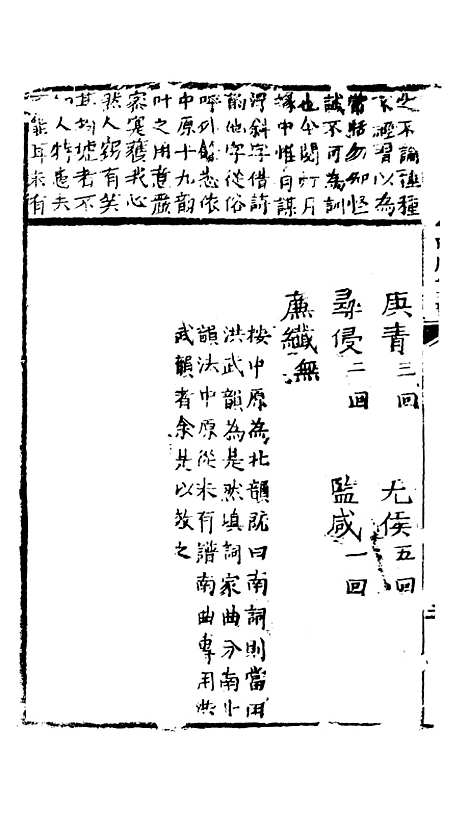 之不論課種
不經習以為
常恬勿知怪
誠不可為訓
也今閱打月
緣中惟自謀
浮斜字借詩
韻他字從俗
呼別餘悉依
中原十九韻
叶之用意嚴
密寔獲我心
然人竊有笑
其拘墟者不
人特患夫
耳未有
庚青三回 尤侯五回
尋侵二回 監咸一回
廉纖無
按中原為北韻既曰南詞則當用
洪武韻為是然填詞家曲分南北
韻法中原從未有譜南曲專用洪
武韻者余是以效之